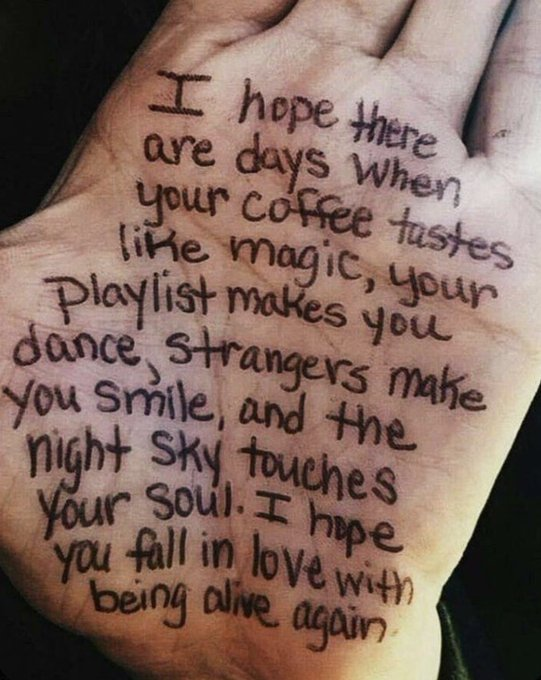 I hope there
are days when
your coffee tastes
like magic, your
playlist makes you
dance, strangers make
you smile, and the
night sky touches
your soul. I hope
you fall in love with
being alive again.